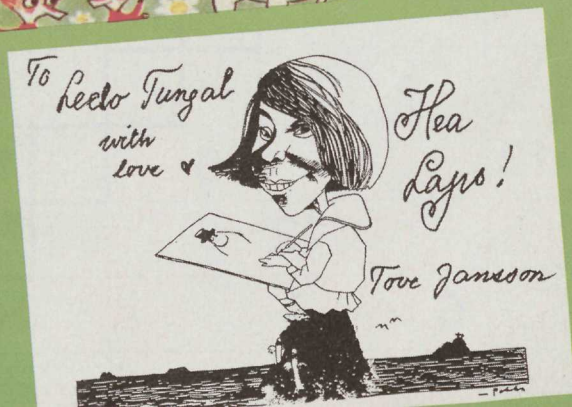 To
Leelo Tungal
with
love
Hea
Laps!
Tove Jansson